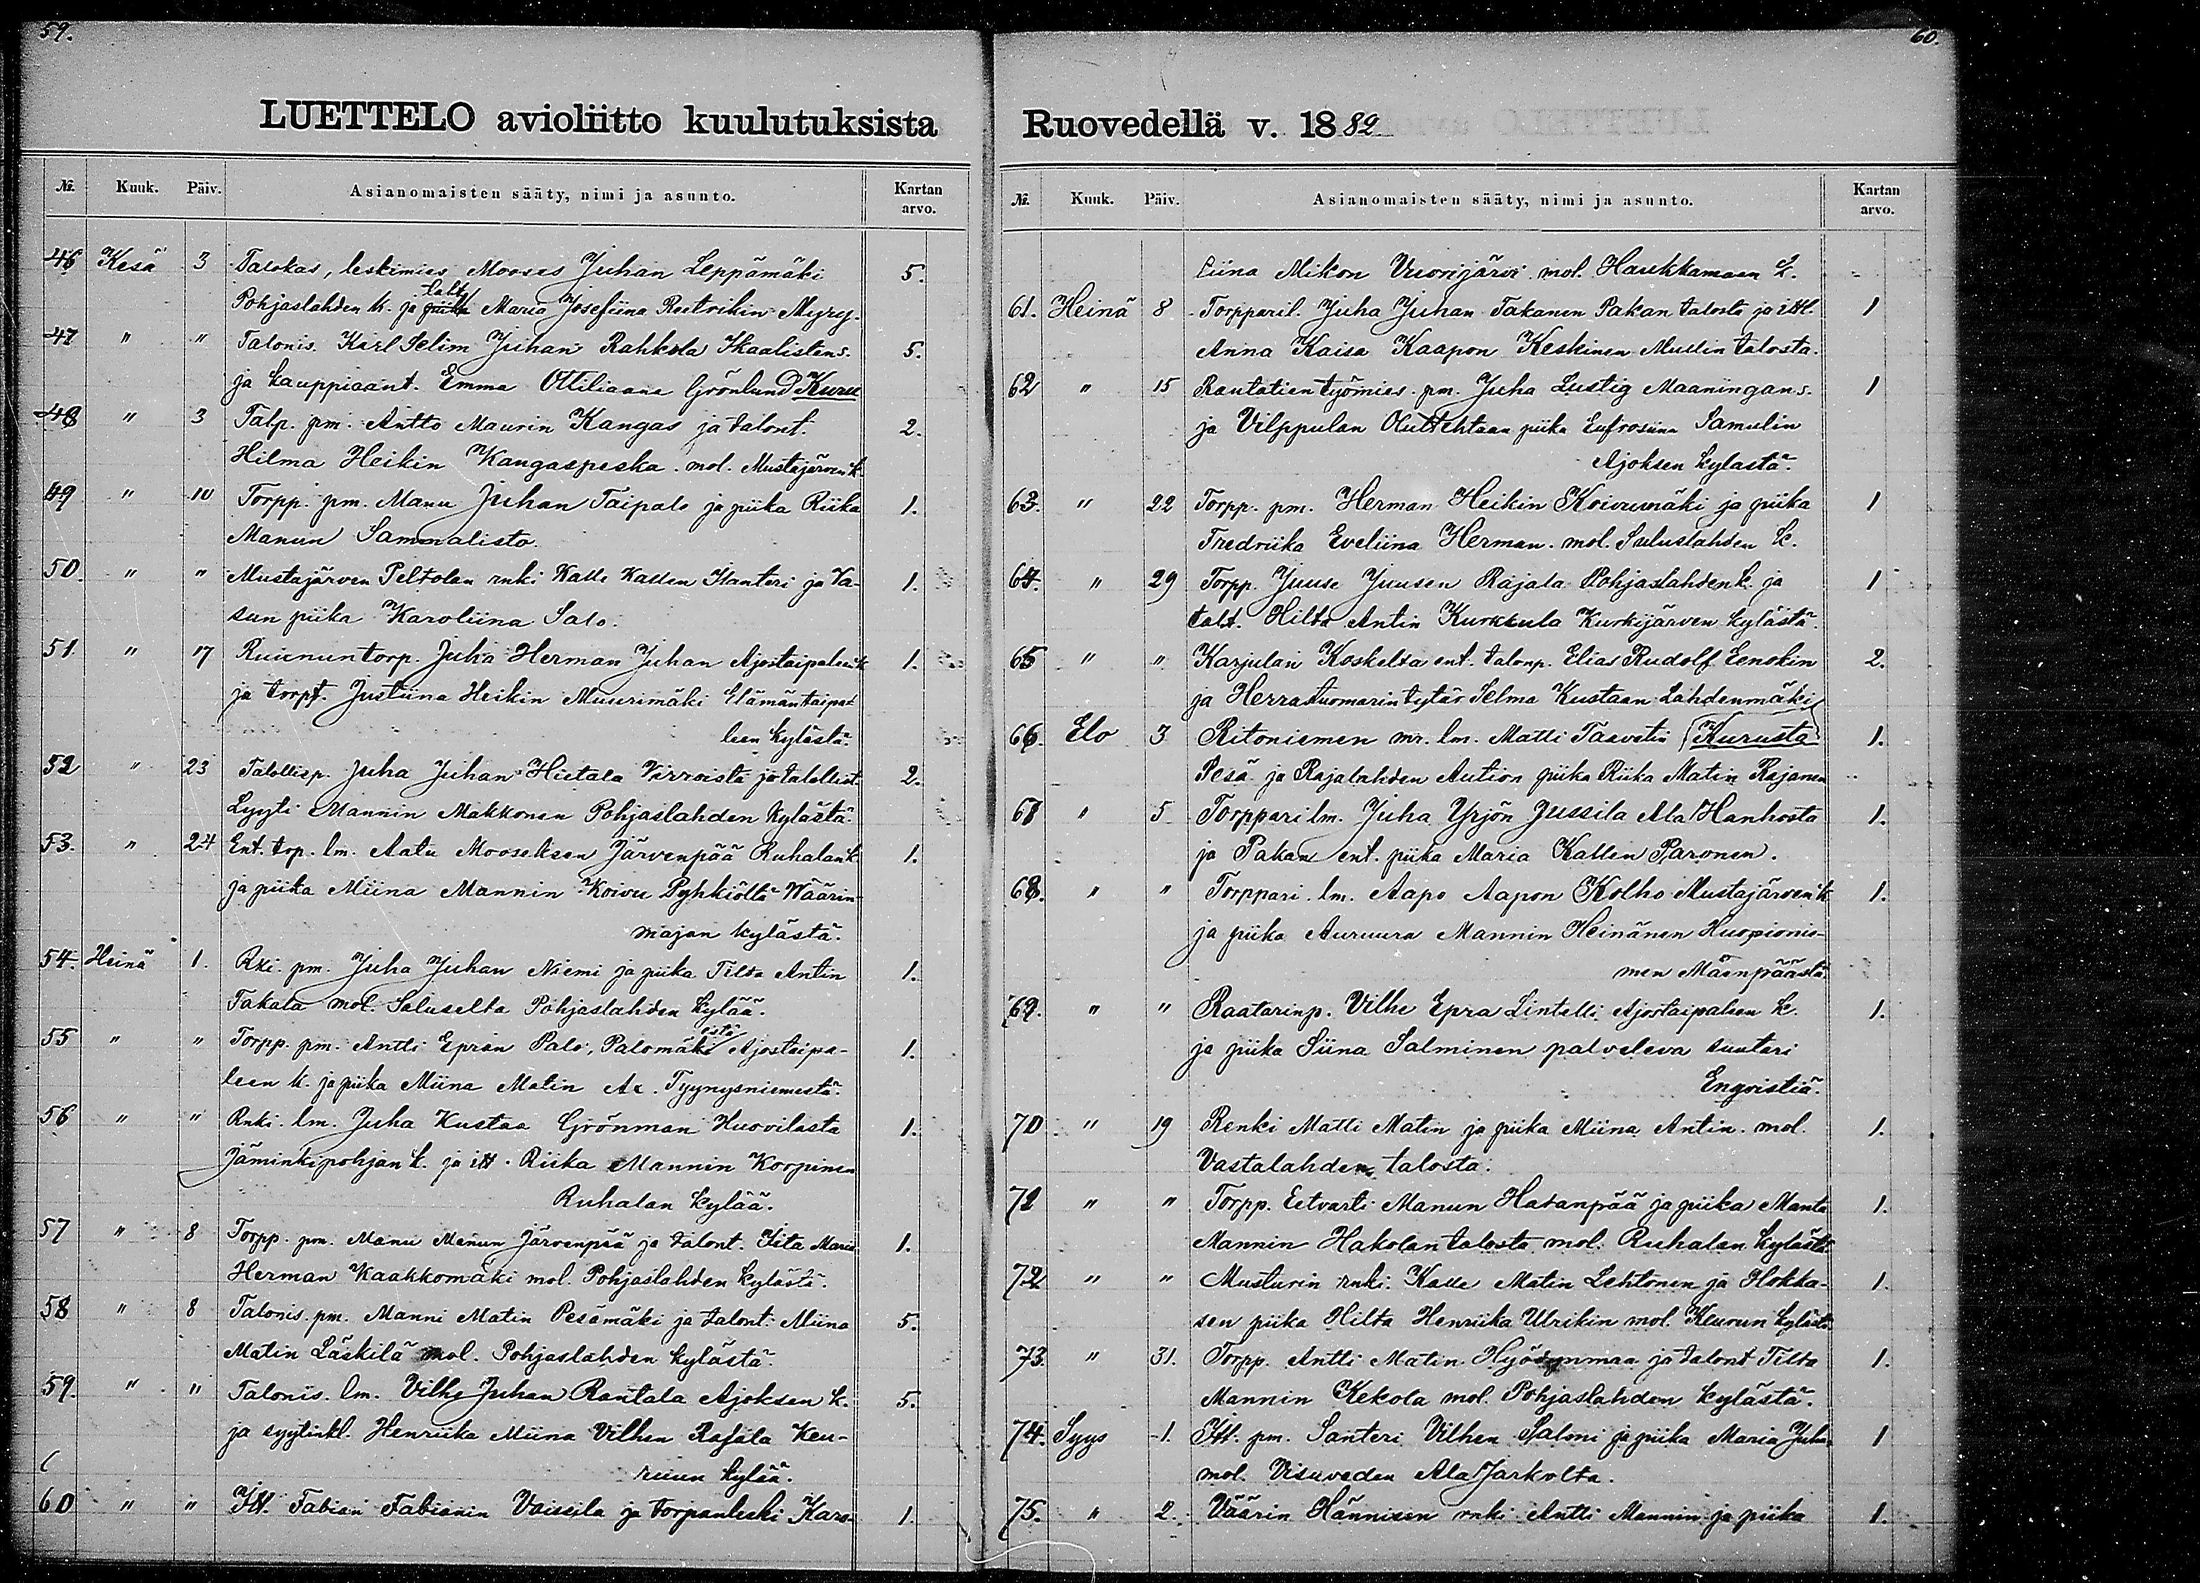 59.
LUETTELO avioliitto kuulutuksista
№. Kuuk. Päiv. Asianomaisten sääty, nimi ja asunto. Kartan arvo.
46 Kesä 3 Talokas, leskimies Mooses Juhan Leppämäki 5.
Pohjaslahden k. ja talt. Maria Josefiina Reetrikin Myry-
47 " " Talonis. Karl Selim Juhan Rahkola Ikaalistens. 5.
ja kauppiaant. Emma Ottiliaana Grönlund Kuru
48 " 3 Talp. pm. Antto Maurin Kangas ja talont. 2.
Hilma Heikin Kangaspeska mol. Mustajärven k
49 " 10 Torpp. pm. Manu Juhan Taipale ja piika Riika 1.
Manun Sammalisto.
50. " " Mustajärven Peltolan rnki Kalle Kallen Ilanteri ja Va- 1.
sun piika Karoliina Salo.
51 " 17 Ruienuntorp. Juha Herman Juhan Ajostaipaleen k 1.
ja torpt. Justiina Heikin Muurimäki Elämäntaipa-
leen kylästä.
52 " 23 Talollisp. Juha Juhan Hietala Virroista ja talollist. 2.
Lyyti Mannin Makkonen Pohjaslahden kylästä.
53. " 24 Ent. torp. lm. Aatu Mooseksen Järvenpää Ruhalan k 1.
ja piika Miina Mannin Koivu Pyhkiöltä Wäärin-
majan kylästä.
54. Heinä 1. Rki. pm. Juha Juhan Niemi ja piika Tilda Antin 1.
Takala mol. Saluselta Pohjaslahden kylää.
55 " " Torpp. pm. Antti Eprän Palo, Palomäkiestä Ajostaipa- 1.
leen k. ja piika Miina Matin Ax. Tyynysniemestä.
56 " " Rnki. lm. Juha Kustaa Grönman Huovilasta 1.
Jäminkipohjan k. ja itt. Riika Mannin Korpinen
Ruhalan kylää.
57 " 8 Torpp. pm. Manu Manun Järvenpää ja talont. Iita Maria 1.
Herman Kaakkomäki mol. Pohjaslahden kylästä.
58 " 8 Talonis. pm. Manni Matin Pesämäki ja talont. Miina 5.
Matin Läskilä mol. Pohjaslahden kylästä.
59. " " Talonis. lm. Vilhe Juhan Rantala Ajoksen k. 5.
ja syytinkl. Henriika Miina Vilhen Rajala Keu-
ruun kylää.
60 " " Itt. Fabian Fabianin Vaissila ja torpanleski Karo- 1.
60.
Ruovedellä v. 1882
№. Kuuk. Päiv. Asianomaisten sääty, nimi ja asunto. Kartan arvo.
liina Mikon Vuorijärvi mol. Haukkamaan k.
61. Heinä 8 Torpparil. Juha Juhan Takanen Pakan talosta ja ittl. 1
Anna Kaisa Kaapon Keskinen Mullin talosta.
62 " 15 Rautatien työmies pm. Juha Lustig Maaningan s. 1
ja Vilppulan Oluttehtaan piika Eufrosiina Samulin
Ajoksen kylästä.
63. " 22 Torpp. pm. Herman Heikin Koivumäki ja piika 1
Fredriika Eveliina Herman. mol. Suluslahden k.
64. " 29 Torpp. Juuse Juusen Rajala Pohjaslahden k. ja 1
talt. Hilda Antin Kurkkula Kurkijärven kylästä.
65 " " Karjulan Koskelta ent. talonp. Elias Rudolf Eenokin 2.
ja Herrastuomarin tytär Selma Kustaan Lahdenmäki
66. Elo 3 Ritoniemen mr. lm. Matti Taavetin Kurusta 1.
Pesä ja Rajalahden Aution piika Riika Matin Rajanen
67 " 5 Torppari lm. Juha Yrjön Jussila Ala Hanhosta 1.
ja Pakan ent. piika Maria Kallen Paronen.
68. " " Torppari. lm. Aapo Aapon Kolho Mustajärven k 1.
ja piika Auruura Mannin Heinänen Huopionie-
men Mäenpäästä.
69. " " Raatarinp. Vilhe Epra Lintelli Ajostaipaleen k. 1.
ja piika Siina Salminen palveleva suutari
Engvistiä.
70 " 19 Renki Matti Matin ja piika Miina Antin mol. 1.
Vastalahden talosta.
71 " " Torpp. Eetvarti Manun Hatanpää ja piika Manta 1.
Mannin Hakolan talosta mol. Ruhalan kylästä
72 " " Musturin rnki. Kalle Matin Lehtonen ja Hokka- 1.
sen piika Hilta Henriika Ulrikin mol. Keurun kylästä
73. " 31. Torpp. Antti Matin Hyödynmaa ja talont Tilda 1.
Mannin Kekola mol. Pohjaslahden kylästä.
74. Syys 1. Itt. pm. Santeri Vilhen Saloni ja piika Maria Juha 1
mol. Visuveden Ala Jarkolta.
75. " 2. Väärin Hännisen rnki Antti Mannin ja piika 1.